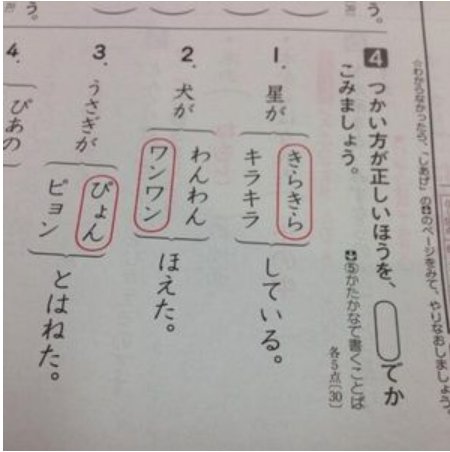 う。
☆わからなかったら、「しあげ」の4のページをみて、やりなおしましょう。
4 つかい方が正しいほうを、◯でか
こみましょう。
⑤かたかなで書くことば
各5点〔30〕
1. 星が
きらきら
キラキラ
している。
2. 犬が
わんわん
ワンワン
ほえた。
3. うさぎが
ぴょん
ピョン
とはねた。
4. ぴあの
う。